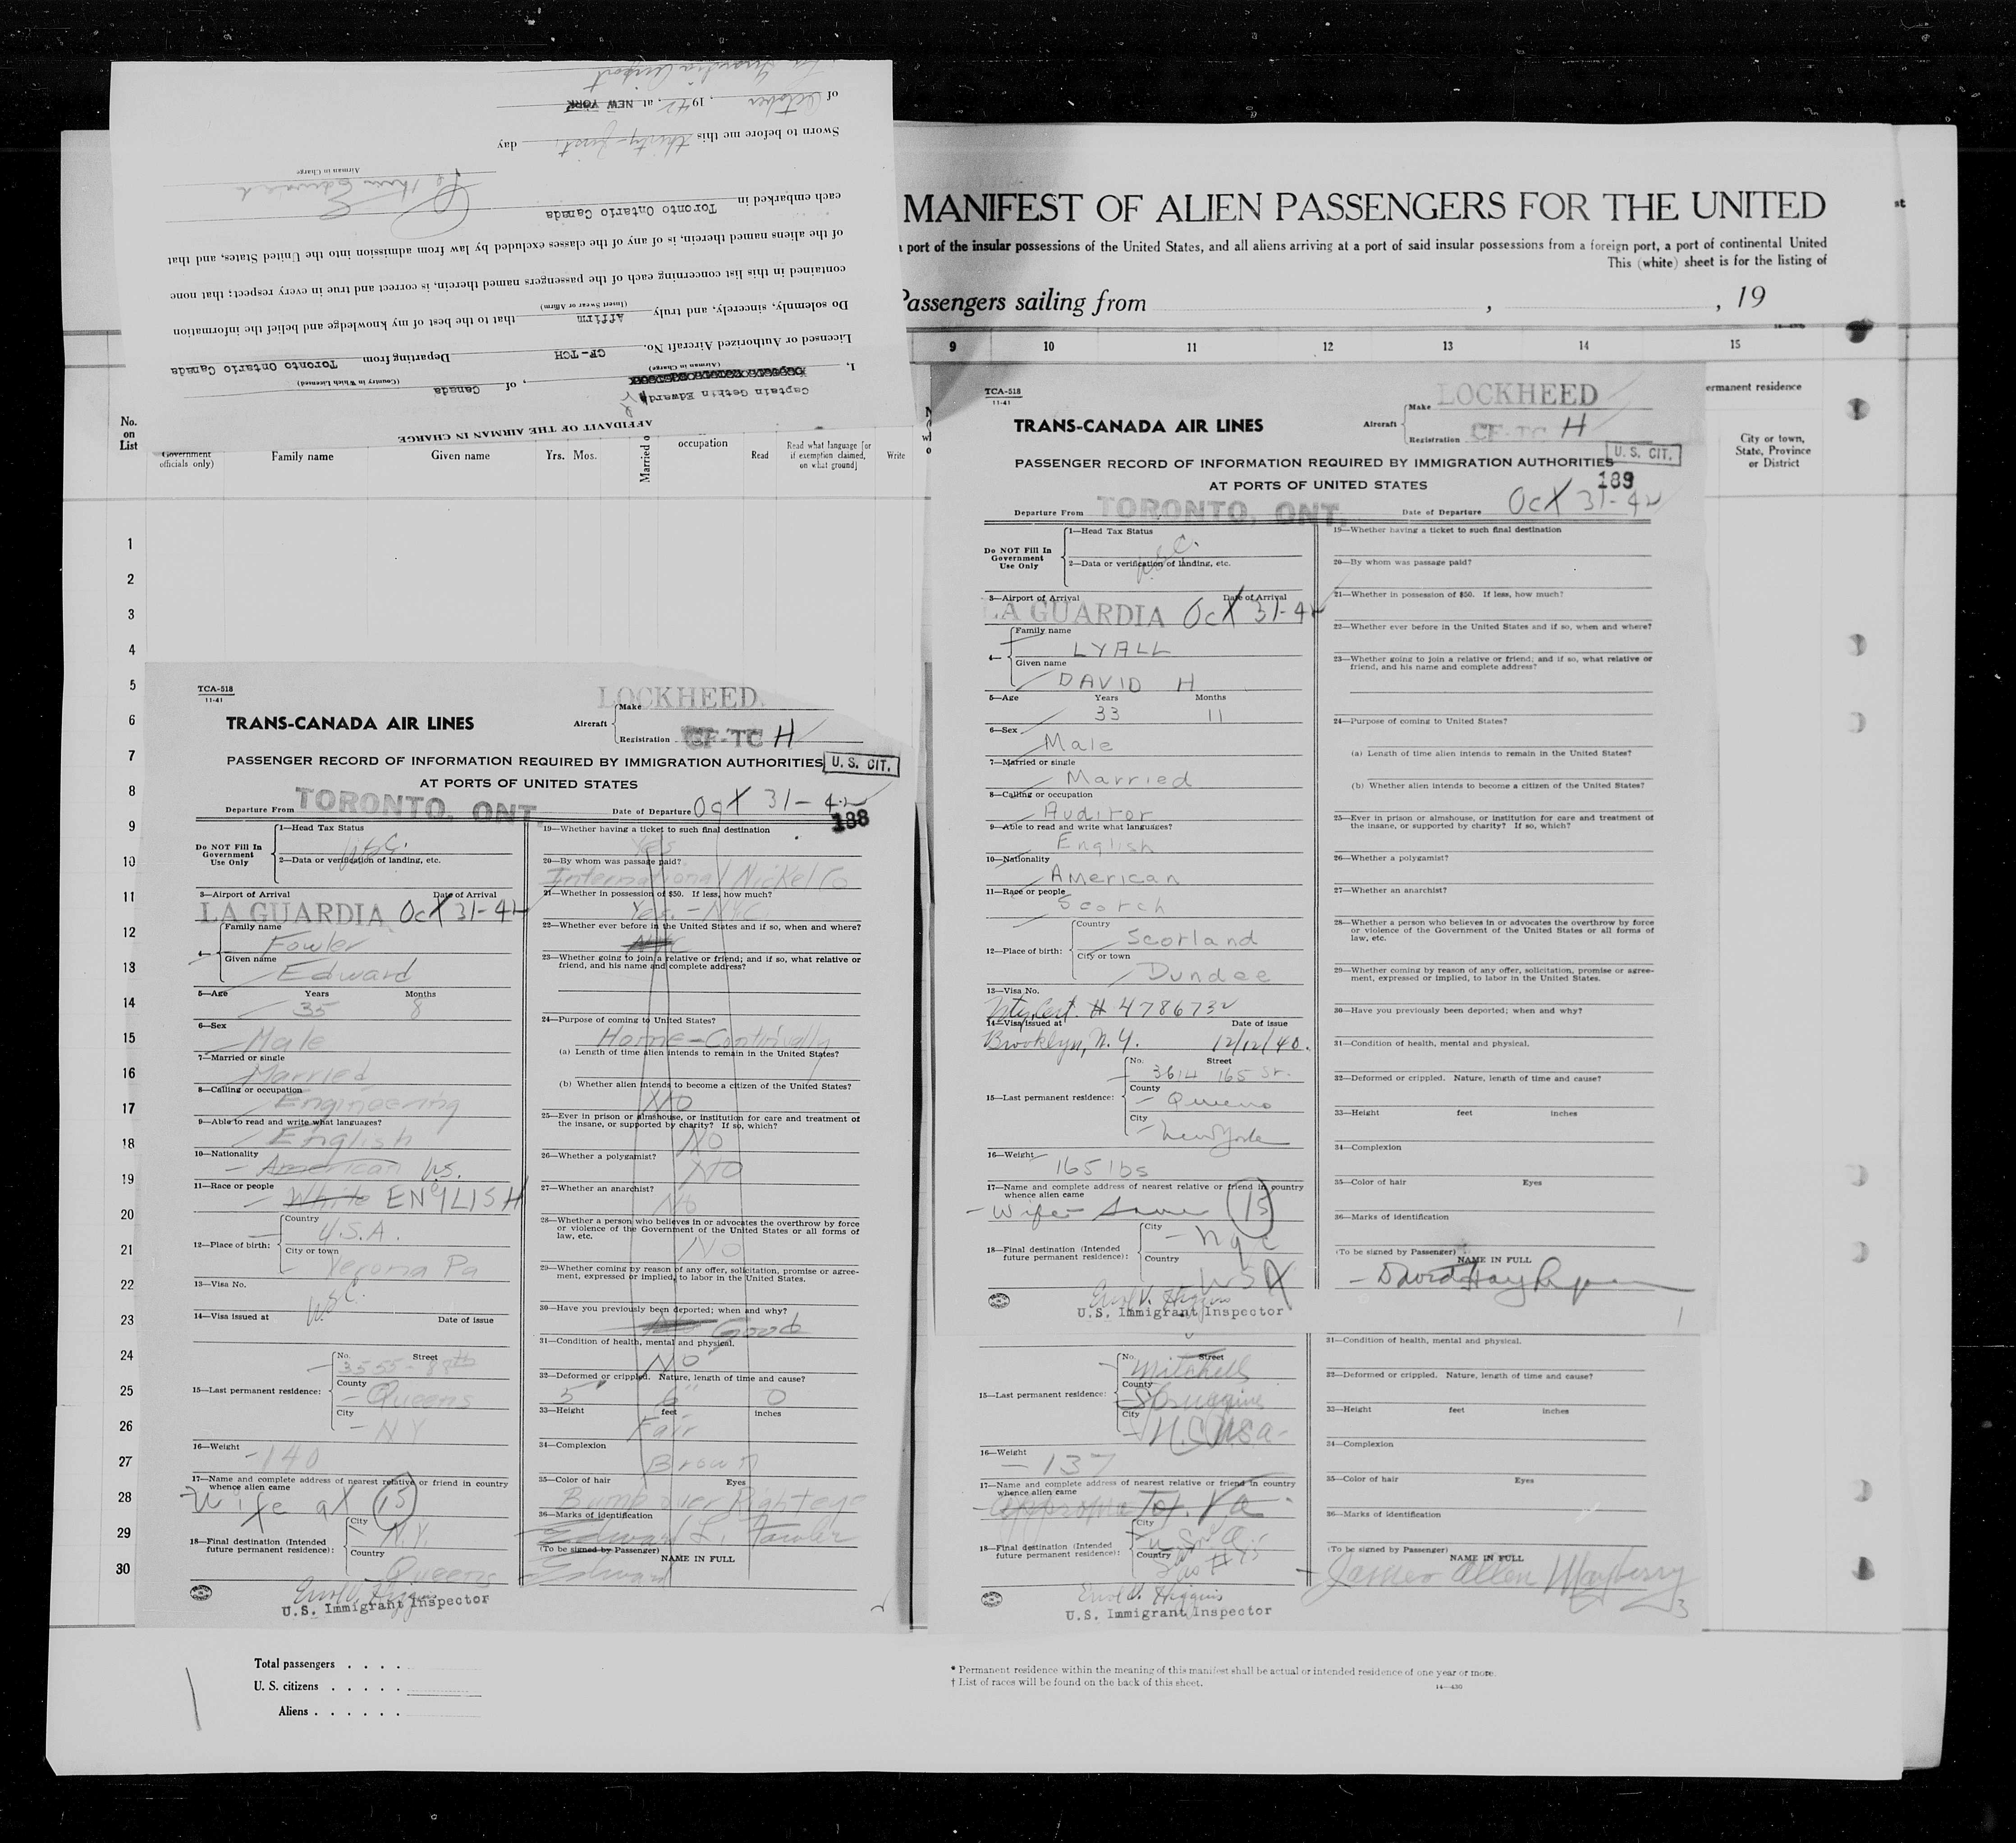 AFFIDAVIT OF THE AIRMAN IN CHARGE
Captain Gethin Edward
I, , of Canada
(Airman in Charge) (Country in Which Licensed)
Licensed or Authorized Aircraft No. CF-TCH Departing from Toronto Ontario Canada
Do solemnly, sincerely, and truly Affirm that to the best of my knowledge and belief the information
(Insert Swear or Affirm)
contained in this list concerning each of the passengers named therein, is correct and true in every respect; that none
of the aliens named therein, is of any of the classes excluded by law from admission into the United States, and that
each embarked in Toronto Ontario Canada
Airman in Charge
Sworn to before me this thirty-first day
of October, 1942, at NEW YORK
La Guardia Airport
MANIFEST OF ALIEN PASSENGERS FOR THE UNITED
st
port of the insular possessions of the United States, and all aliens arriving at a port of said insular possessions from a foreign port, a port of continental United
This (white) sheet is for the listing of
Passengers sailing from , , 19
9 10 11 12 13 14 15
ermanent residence
City or town, State, Province or District
No. on List
Government officials only)
Family name Given name Yrs. Mos. Married o occupation Read Read what language [or if exemption claimed, on what ground] Write
1
2
3
4
5
6
7
8
9
10
11
12
13
14
15
16
17
18
19
20
21
22
23
24
25
26
27
28
29
30
TCA-518
11-41
TRANS-CANADA AIR LINES
Aircraft
Make LOCKHEED
Registration CF-TC H
PASSENGER RECORD OF INFORMATION REQUIRED BY IMMIGRATION AUTHORITIES
U. S. CIT.
AT PORTS OF UNITED STATES
Departure From TORONTO, ONT. Date of Departure Oct 31-42
188
Do NOT Fill In Government Use Only
1—Head Tax Status
USC.
2—Data or verification of landing, etc.
3—Airport of Arrival Date of Arrival
LA GUARDIA Oct 31-42
4—
Family name
Fowler
Given name
Edward
5—Age Years Months
35 8
6—Sex
Male
7—Married or single
Married
8—Calling or occupation
Engineering
9—Able to read and write what languages?
English
10—Nationality
American US.
11—Race or people
White ENGLISH
12—Place of birth:
Country
U.S.A.
City or town
Verona Pa
13—Visa No.
USC.
14—Visa issued at Date of issue
15—Last permanent residence:
No. Street
3555-87th
County
Queens
City
NY
16—Weight
140
17—Name and complete address of nearest relative or friend in country whence alien came
Wife at 15
18—Final destination (Intended future permanent residence):
City
N.Y.
Country
Queens
U.S. Immigrant Inspector
19—Whether having a ticket to such final destination
Yes
20—By whom was passage paid?
International Nickel Co
21—Whether in possession of $50. If less, how much?
Yes. - NYC
22—Whether ever before in the United States and if so, when and where?
23—Whether going to join a relative or friend; and if so, what relative or friend, and his name and complete address?
24—Purpose of coming to United States?
Home-
(a) Length of time alien intends to remain in the United States?
(b) Whether alien intends to become a citizen of the United States?
No
25—Ever in prison or almshouse, or institution for care and treatment of the insane, or supported by charity? If so, which?
No
26—Whether a polygamist?
No
27—Whether an anarchist?
No
28—Whether a person who believes in or advocates the overthrow by force or violence of the Government of the United States or all forms of law, etc.
No
29—Whether coming by reason of any offer, solicitation, promise or agreement, expressed or implied, to labor in the United States.
30—Have you previously been deported; when and why?
Good
31—Condition of health, mental and physical.
No
32—Deformed or crippled. Nature, length of time and cause?
5" 6" 0
33—Height feet inches
Fair
34—Complexion
Brown
35—Color of hair Eyes
Bump over Right eye
36—Marks of identification
Edward L. Fowler
(To be signed by Passenger) NAME IN FULL
Edward
TCA-518
11-41
TRANS-CANADA AIR LINES
Aircraft
Make LOCKHEED
Registration CF-TC H
PASSENGER RECORD OF INFORMATION REQUIRED BY IMMIGRATION AUTHORITIES
U. S. CIT.
AT PORTS OF UNITED STATES
189
Departure From TORONTO, ONT. Date of Departure Oct 31-42
Do NOT Fill In Government Use Only
1—Head Tax Status
USC.
2—Data or verification of landing, etc.
3—Airport of Arrival Date of Arrival
LA GUARDIA Oct 31-42
4—
Family name
LYALL
Given name
DAVID H
5—Age Years Months
33 11
6—Sex
Male
7—Married or single
Married
8—Calling or occupation
Auditor
9—Able to read and write what languages?
English
10—Nationality
American
11—Race or people
Scotch
12—Place of birth:
Country
Scotland
City or town
Dundee
13—Visa No.
Nty Cert. # 4786732
14—Visa issued at Date of issue
Brooklyn, N.Y. 12/12/40.
15—Last permanent residence:
No. Street
3614 165 St.
County
Queens
City
New York
16—Weight
165 lbs
17—Name and complete address of nearest relative or friend in country whence alien came
Wife - Same 15
18—Final destination (Intended future permanent residence):
City
NYC
Country
USA
U.S. Immigrant Inspector
19—Whether having a ticket to such final destination
20—By whom was passage paid?
21—Whether in possession of $50. If less, how much?
22—Whether ever before in the United States and if so, when and where?
23—Whether going to join a relative or friend; and if so, what relative or friend, and his name and complete address?
24—Purpose of coming to United States?
(a) Length of time alien intends to remain in the United States?
(b) Whether alien intends to become a citizen of the United States?
25—Ever in prison or almshouse, or institution for care and treatment of the insane, or supported by charity? If so, which?
26—Whether a polygamist?
27—Whether an anarchist?
28—Whether a person who believes in or advocates the overthrow by force or violence of the Government of the United States or all forms of law, etc.
29—Whether coming by reason of any offer, solicitation, promise or agreement, expressed or implied, to labor in the United States.
30—Have you previously been deported; when and why?
31—Condition of health, mental and physical.
32—Deformed or crippled. Nature, length of time and cause?
33—Height feet inches
34—Complexion
35—Color of hair Eyes
36—Marks of identification
(To be signed by Passenger) NAME IN FULL
David Hay Lyall
1
15—Last permanent residence:
No. Street
Mitchell
County
City
16—Weight
137
17—Name and complete address of nearest relative or friend in country whence alien came
18—Final destination (Intended future permanent residence):
City
Country
U.S. Immigrant Inspector
31—Condition of health, mental and physical.
32—Deformed or crippled. Nature, length of time and cause?
33—Height feet inches
34—Complexion
35—Color of hair Eyes
36—Marks of identification
(To be signed by Passenger) NAME IN FULL
James Allen Mayberry
3
Total passengers . . . .
U. S. citizens . . . . .
Aliens . . . . . .
* Permanent residence within the meaning of this manifest shall be actual or intended residence of one year or more.
† List of races will be found on the back of this sheet.
14—430